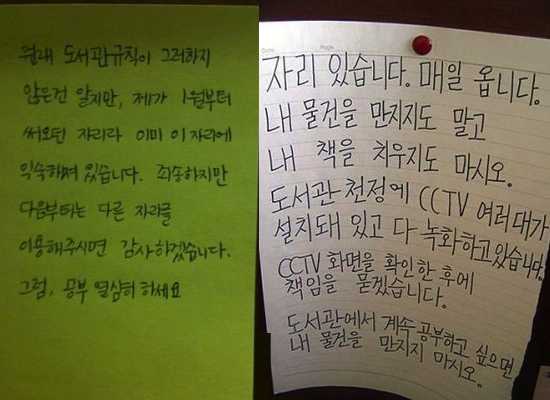 원래 도서관규칙이 그러하지
않은건 알지만, 제가 1월부터
써오던 자리라 이미 이 자리에
익숙해져 있습니다. 죄송하지만
다음부터는 다른 자리를
이용해주시면 감사하겠습니다.
그럼, 공부 열심히 하세요
자리 있습니다. 매일 옵니다.
내 물건을 만지지도 말고
내 책을 치우지도 마시오.
도서관 천정에 CCTV 여러대가
설치돼 있고 다 녹화하고 있습니다.
CCTV 화면을 확인한 후에
책임을 묻겠습니다.
도서관에서 계속 공부하고 싶으면
내 물건을 만지지 마시오.